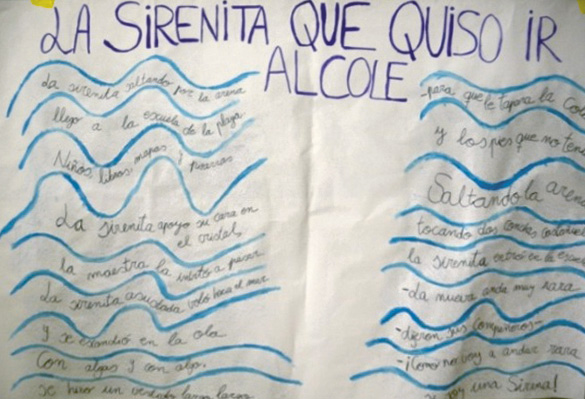 LA SiRENiTA QUE QUiSO iR
AL COLE
La sirenita saltando por la arena
llego a la escuela de la playa.
Niños, libros, mapas y
La sirenita apoyo su cara en
el cristal,
la maestra la invito a pasar.
La sirenita asustada voló hacia el mar
y se escondió en la ola.
Con algas y con
se hizo un vestido largo largo
-para que le tapara la
y los pies que no
Saltando la
tocando dos
la sirenita entró en la
-La nueva anda muy rara
-dijeron sus compañeros-
-¡Como no voy a andar rara
si soy una Sirena!